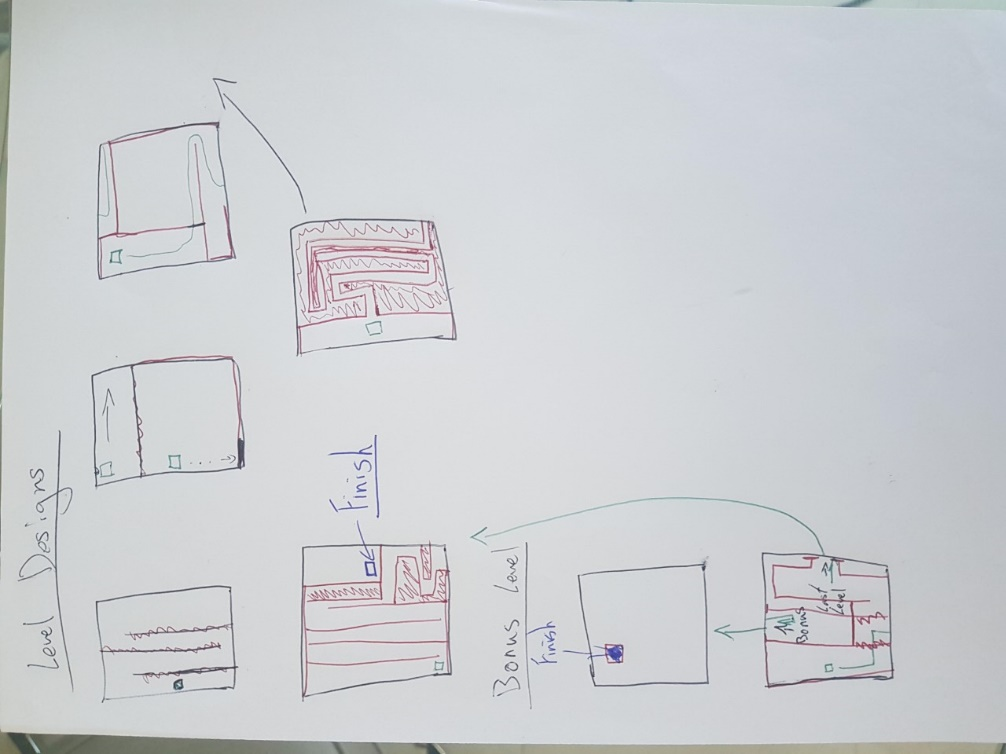 Level Designs
Finish
Bonus Level
Finish
Bonus
Last
Level